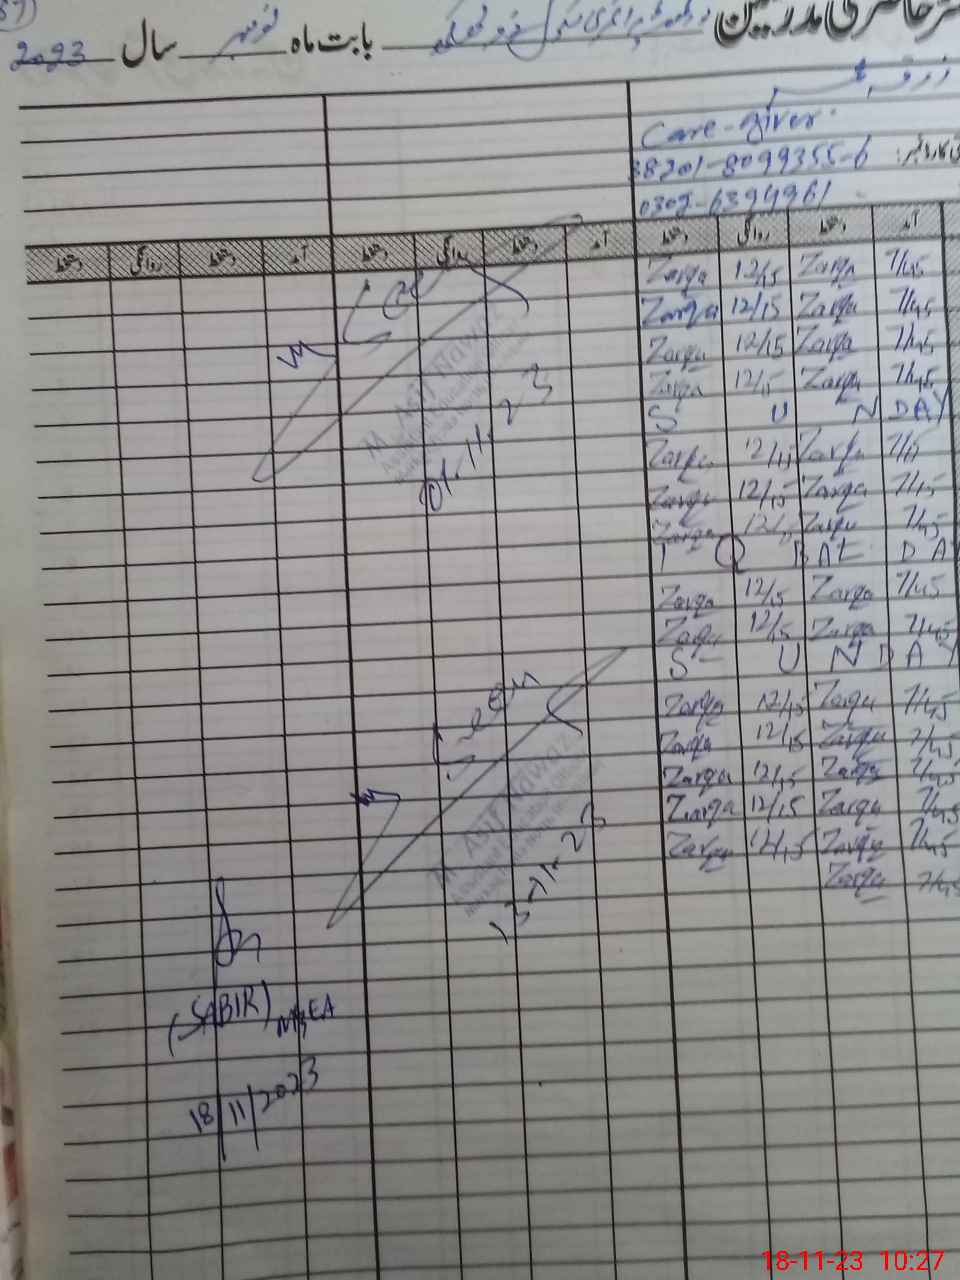 حاضری مدرسین بابت ماہ نومبر سال 2023
Care-giver.
38201-8099355-6
0302-6394961
آمد دستخط روانگی دستخط آمد دستخط روانگی دستخط آمد دستخط روانگی دستخط
7/45 Zarqa 12/15 Zarqa
7/45 Zarqa 12/15 Zarqa
7/45 Zarqa 12/15 Zarqa
7/45 Zarqa 12/15 Zarqa
S U N DAY
Zarqa 12/15 Zarqa
7/45 Zarqa 12/15 Zarqa
7/45 Zarqa 12/15 Zarqa
I Q BAL DAY
7/45 Zarqa 12/15 Zarqa
7/45 Zarqa 12/15 Zarqa
S U N D A Y
7/45 Zarqa 12/15 Zarqa
7/45 Zarqa 12/15 Zarqa
7/45 Zarqa 12/15 Zarqa
7/45 Zarqa 12/15 Zarqa
7/45 Zarqa 12/15 Zarqa
7/45 Zarqa
Seen
M. Asif Nawaz
Seen
M. Asif Nawaz
(SABIR) MEA
18/11/2023
18-11-23 10:27